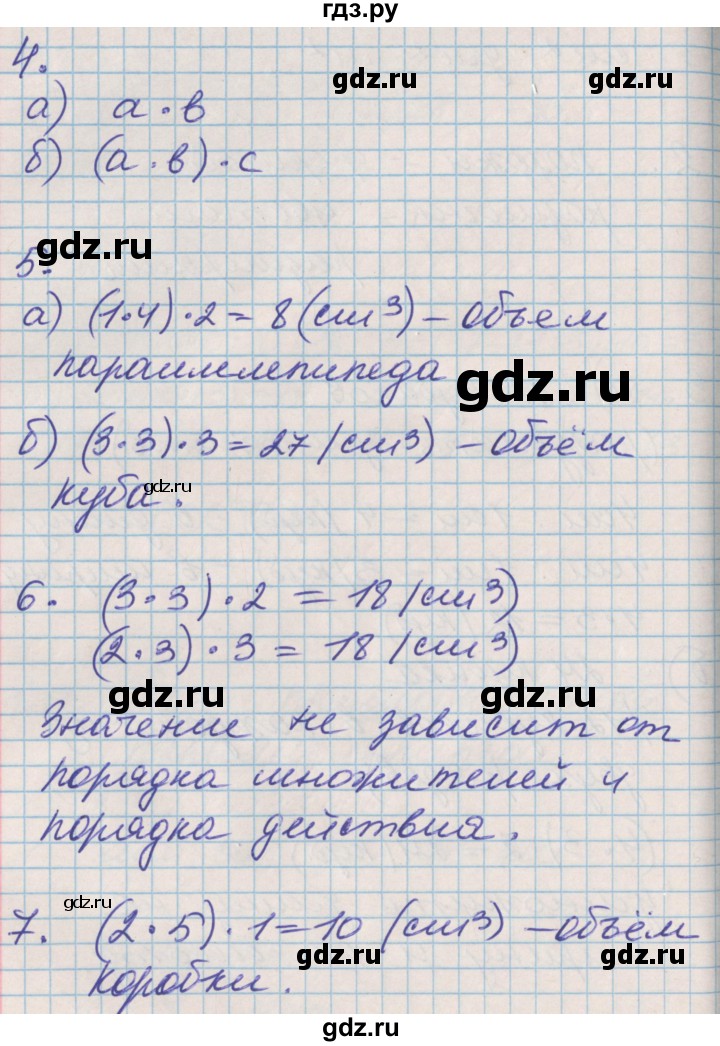 гдз.ру
4.
gdz.ru gdz.ru
а) а · в
б) (а · в) · с
gdz.ru
5.
а) (1·4) · 2 = 8 (см³) – объем
параллелепипеда
gdz.ru
б) (3·3) · 3 = 27 (см³) – объём
gdz.ru
куба.
6. (3·3) · 2 = 18 (см³)
(2·3) · 3 = 18 (см³)
gdz.ru gdz.ru
Значение не зависит от
порядка множителей и
порядка действия.
gdz.ru
7. (2·5) · 1 = 10 (см³) – объём
gdz.ru gdz.ru
коробки.
gdz.ru